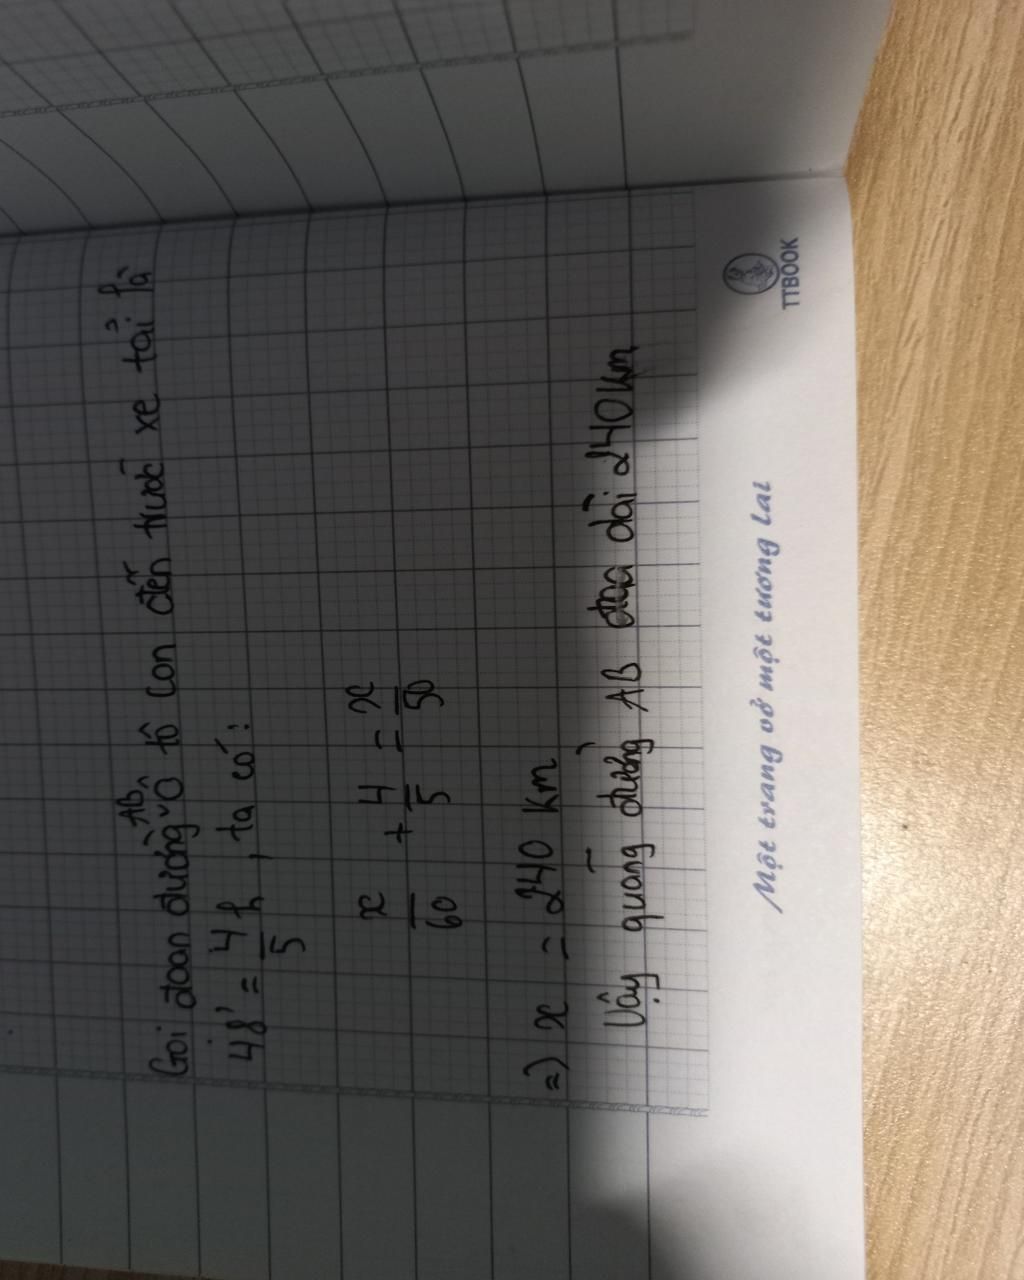 Gọi đoạn đường AB ô tô con đến trước xe tải là
48' = 4/5 h, ta có:
x/60 + 4/5 = x/50
=> x = 240 km
Vậy quãng đường AB dài 240 km
TTBOOK
Một trang vở một tương lai